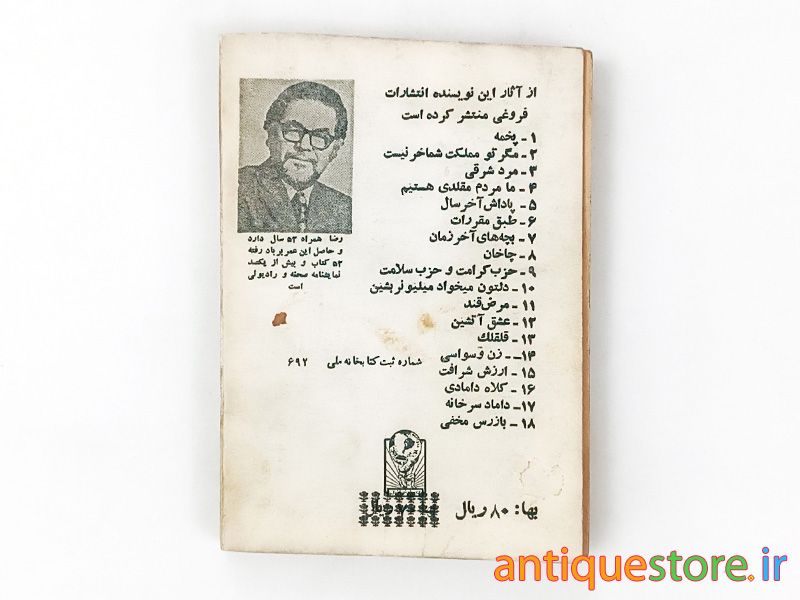 از آثار این نویسنده انتشارات
فروغی منتشر کرده است
۱- پخمه
۲- مگر تو مملکت شما خر نیست
۳- مرد شرقی
۴- ما مردم مقلدی هستیم
۵- پاداش آخر سال
۶- طبق مقررات
۷- بچه‌های آخر زمان
۸- چاخان
۹- حزب کرامت و حزب سلامت
۱۰- دلتون میخواد میلیونر بشین
۱۱- مرض قند
۱۲- عشق آتشین
۱۳- قلقلک
۱۴- زن وسواسی
۱۵- ارزش شرافت
۱۶- کلاه دامادی
۱۷- داماد سرخانه
۱۸- بازرس مخفی
رضا همراه ۵۳ سال دارد
و حاصل این عمر برباد رفته
۵۳ کتاب و بیش از یکصد
نمایشنامه صحنه و رادیوئی
است
شماره ثبت کتابخانه ملی ۶۹۲
بها: ۸۰ ریال
ریال
antiquestore.ir